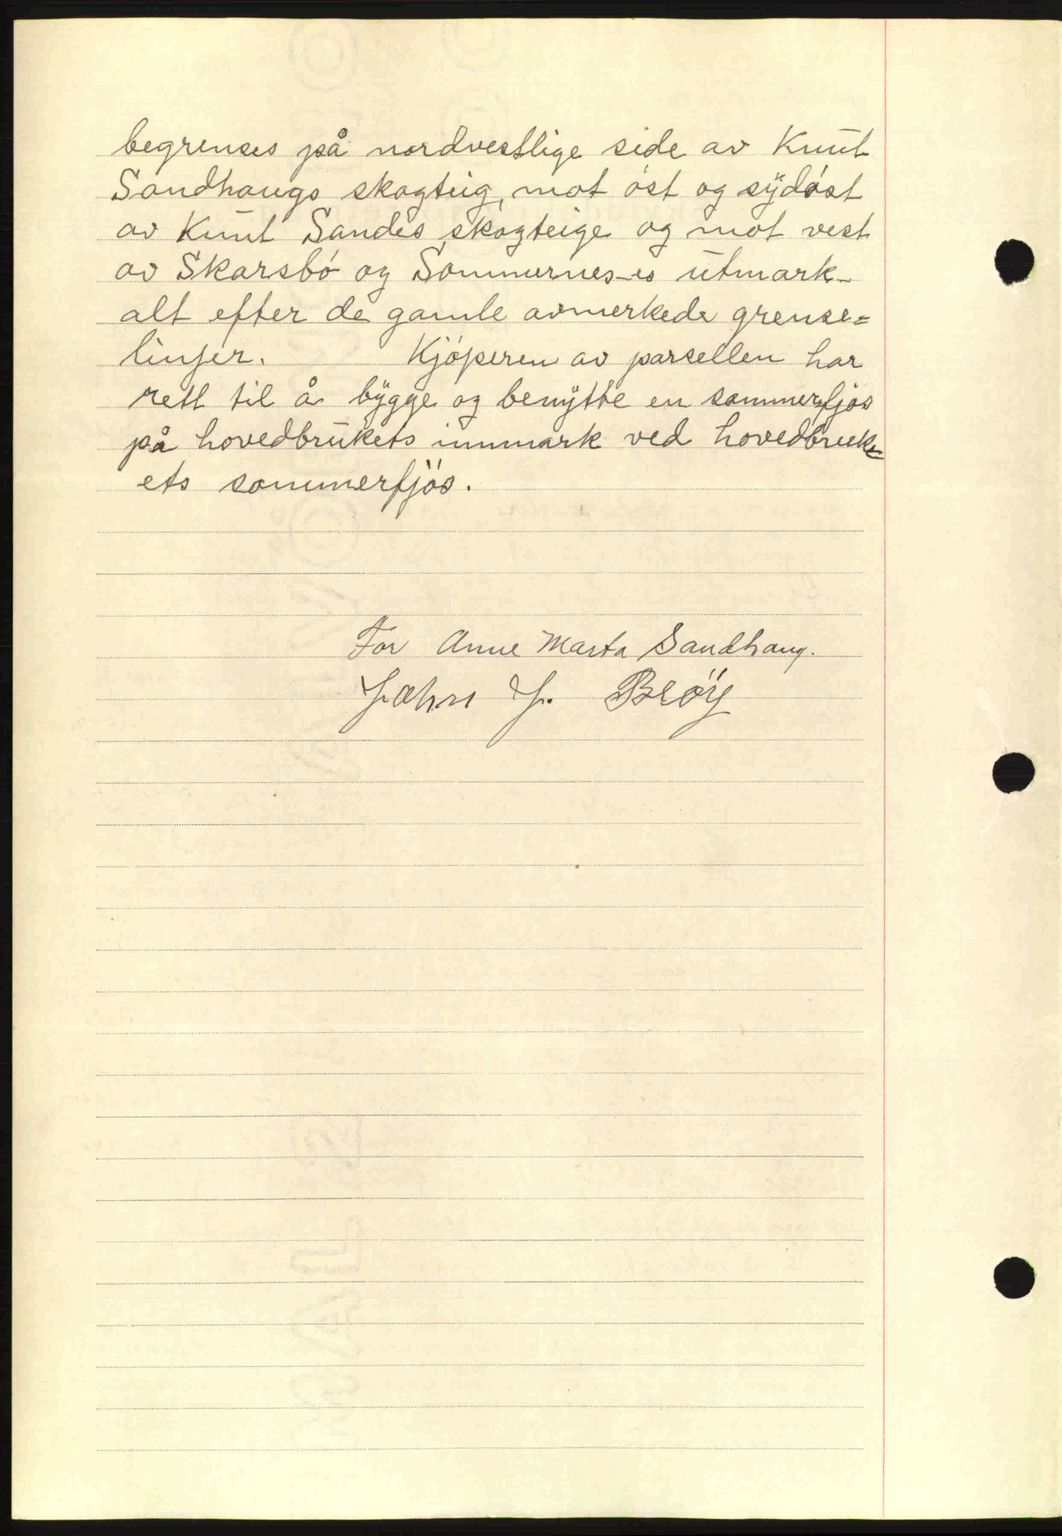 begrenses på nordvestlige side av Knut
Sandhaugs skogteig, mot öst og sydöst
av Knut Sandes skogteige og mot vest
av Skarsbö og Sommernes-es utmark-
alt efter de gamle avmerkede grense=
linjer. Kjöperen av parsellen har
rett til å bygge og benytte en sommerfjös
på hovedbrukets innmark ved hovedbruk=
ets sommerfjös.
For Anne Marta Sandhaug.
John J. Bröy